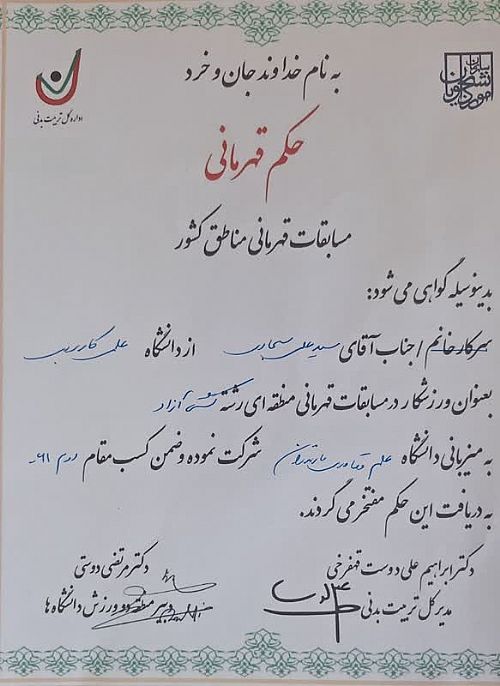 به نام خداوند جان و خرد
سازمان
امور دانشجویان
اداره کل تربیت بدنی
حکم قهرمانی
مسابقات قهرمانی مناطق کشور
بدینوسیله گواهی می شود:
سرکار خانم / جناب آقای سید علی از دانشگاه علمی کاربردی
بعنوان ورزشکار در مسابقات قهرمانی منطقه ای رشته کشتی آزاد
به میزبانی دانشگاه علم و فناوری مازندران شرکت نموده و ضمن کسب مقام دوم ۶۱-
به دریافت این حکم مفتخر می گردند.
دکتر ابراهیم علی دوست قهفرخی
مدیر کل تربیت بدنی
دکتر مرتضی دوستی
دبیر منطقه دو ورزش دانشگاه ها